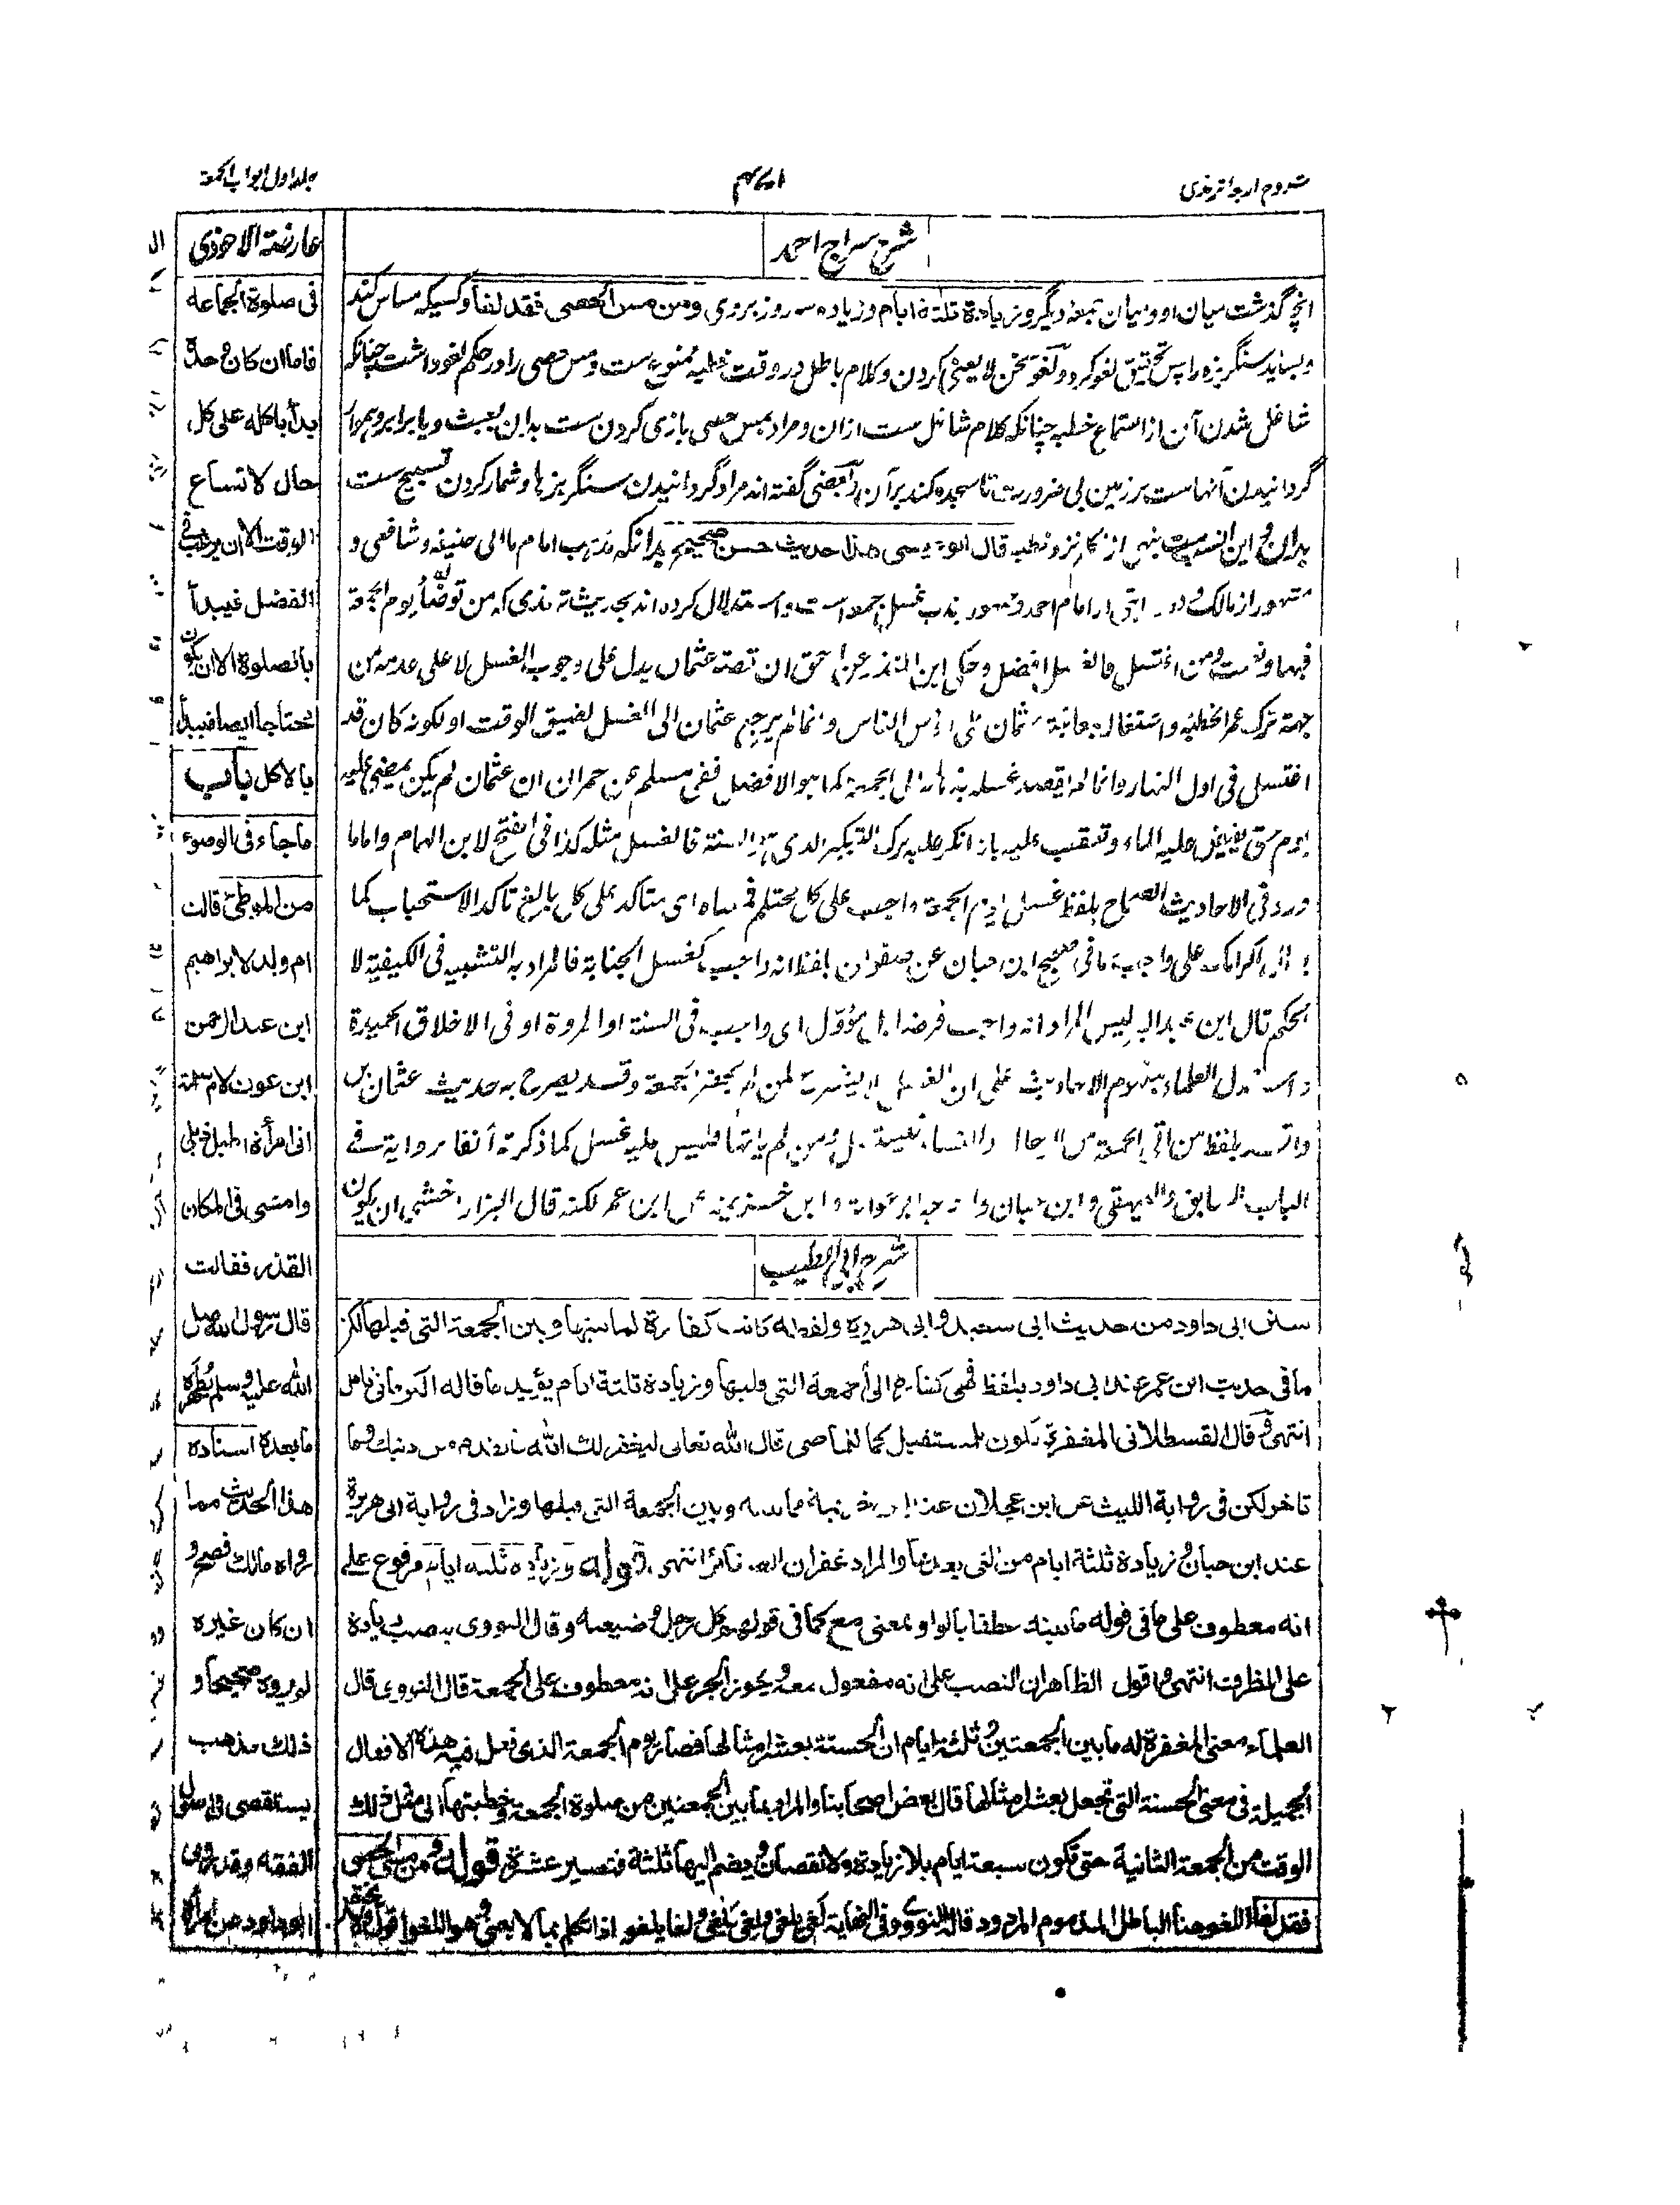 شروح اربعہ ترمذی
جلد اول ابواب الجمعۃ
شرح سراج احمد
انچہ گذشت میان او و میان جمعہ دیگر و زیادۃ ثلثۃ ایام و زیادہ سہ روز بروی ومن مس الحصی فقد لغا و کسیکہ مساس کند
و بساید سنگریزہ را پس تحقیق لغو کرد و لغو سخن لا یعنی کردن و کلام باطل در وقت خطبہ ممنوع ست و مس حصی را در حکم لغو داشت چنانکہ
شاغل شدن آن از استماع خطبہ چنانکہ کلام شاغل ست ازان و مراد بمس حصی بازی کردن ست بدان بعبث و یا برابر و ہموار
گردانیدن آنہاست بر زمین بی ضرورت تا سجدہ کند بر آن و بعضی گفتہ اند مراد گردانیدن سنگریزہا و شمار کردن تسبیح ست
بدان و این از نماز و خطبہ قال ابو عیسی هذا حدیث حسن صحیح بدانکہ مذہب امام ما ابی حنیفہ و شافعی و
مشہور از مالک و امام احمد و جمہور ندب غسل جمعہ است و استدلال کردہ اند بحدیث ترمذی کہ من توضأ یوم الجمعۃ
فبہا ونعمت ومن اغتسل فالغسل افضل وحکی ابن المنذر عن اسحق ان قصۃ عثمان یدل علی وجوب الغسل لا علی عدمہ من
جہۃ ترک عمر الخطبۃ واشتغالہ بمعاتبۃ عثمان علی رؤس الناس وانما لم یرجع عثمان الی الغسل لضیق الوقت او لکونہ کان قد
اغتسل فی اول النہار وانما لم الی الجمعۃ کما ہو الافضل ففی مسلم عن حمران ان عثمان لم یکن یمضی علیہ
یوم حتی یفیض علیہ الماء وتعقب علیہ بانہ انکر علیہ ترک التبکیر الذی السنۃ فالغسل مثلہ کذا فی الفتح لابن الہمام واما ما
ورد فی الاحادیث الصحاح بلفظ غسل یوم الجمعۃ واجب علی کل محتلم ای متاکد علی کل بالغ تاکد الاستحباب کما
علی واجب ما فی صحیح ابن حبان عن صفوان بلفظ انہ واجب کغسل الجنابۃ فالمراد بہ التشبیہ فی الکیفیۃ لا
الحکم قال ابن عبد البر لیس المراد انہ واجب فرضا بل مؤول ای واجب فی السنۃ او المروۃ او فی الاخلاق الحمیدۃ
واستدل العلماء الاحادیث علی ان الغسل لمن لم یحضر الجمعۃ وقد یصرح بہ حدیث عثمان بن
بلفظ من اتی الجمعۃ من الرجال والنساء ومن لم یاتہا فلیس علیہ غسل کما ذکرتہ آنفا بروایۃ فی
الباب السابق والبیہقی وابن حبان وابو عوانۃ وابن خزیمۃ عن ابن عمر لکنہ قال البزار اخشی ان یکون
شرح ابی الطیب
سنن ابی داود من حدیث ابی سعید و ابی هریرة ولفظه کانت کفارة لما بینها وبین الجمعة التی قبلها لکن
ما فی حدیث ابن عمر عند ابی داود بلفظ فهی کفارة الی الجمعة التی تلیها وزیادة ثلثة ایام یؤید ما قاله الکرمانی تامل
انتهی وقال القسطلانی المغفرة تکون للمستقبل کما للماضی قال الله تعالی لیغفر لک الله ما تقدم من ذنبک وما
تاخر لکن فی روایة اللیث عن ابن عجلان عند ابن خزیمة ما بینه وبین الجمعة التی قبلها وزاد فی روایة ابی هریرة
عند ابن حبان و زیادة ثلثة ایام من التی بعدها والمراد غفران الصغائر انتهی قوله و زیادة ثلثة ایام مرفوع علی
انه معطوف علی ما فی قوله ما بینه عطفا بالواو بمعنی مع کما فی قولهم کل رجل وضیعته وقال النووی بنصب زیادة
علی الظرف انتهی و اقول الظاهر ان النصب علی انه مفعول معه ویجوز الجر علی انه معطوف علی الجمعة قال النووی قال
العلماء معنی المغفرة له ما بین الجمعتین وثلثة ایام ان الحسنة بعشر امثالها فصار یوم الجمعة الذی فعل فیه هذه الافعال
الجمیلة فی معنی الحسنة التی تجعل بعشر امثالها قال بعض اصحابنا والمراد بما بین الجمعتین من صلوة الجمعة وخطبتها الی مثل ذلک
الوقت من الجمعة الثانیة حتی تکون سبعة ایام بلا زیادة ولا نقصان ویضم الیها ثلثة فتصیر عشرة قوله ومن مس الحصی
فقد لغا اللغو هنا الباطل المذموم المردود قاله النووی وفی النهایة لغی یلغی ولغی یلغی ولغا یلغو اذا تکلم بما لا یعنی وهو اللغو
عارضة الاحوذی
فی صلوة الجماعة
فاما ان کان
یبدأ باکله علی کل
حال لاتساع
الوقت الا ان یرغب فی
الفضل فیبدأ
بالصلوة الا ان یکون
محتاجا ایضا فیبدأ
بالاکل باب
ما جاء فی الوضوء
من الموطئ قالت
ام ولد لابراهیم
ابن عبدالرحمن
ابن عون لام سلمة
انی امرأة اطیل ذیلی
وامشی فی المکان
القذر فقالت
قال رسول الله صلی
الله علیه وسلم یطهره
ما بعده اسناده
هذا الحدیث مما
رواه مالک فصح و
ان کان غیره
لم یروه صحیحا و
ذلک مذهب
یستقصی فی اصول
الفقه وقد روی
ابو داود عن امرأة